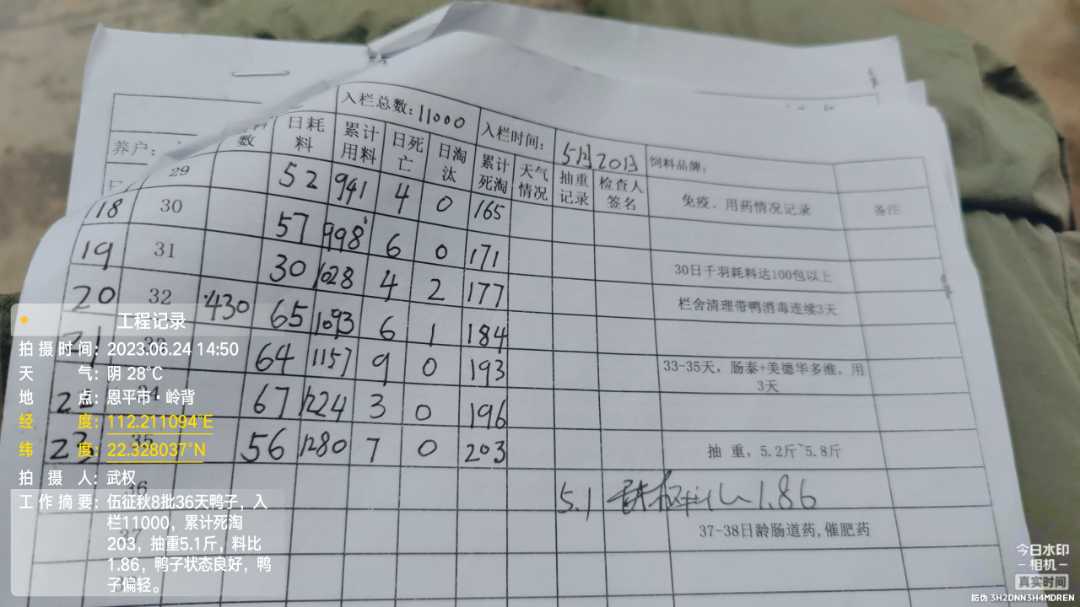 入栏总数：11000 入栏时间：5月20日 饲料品牌：
养户： 数 日耗料 累计用料 日死亡 日淘汰 累计死淘 天气情况 抽重记录 检查人签名 免疫、用药情况记录 备注
29 52 941 4 0 165
18 30 57 998 6 0 171
19 31 30 1028 4 2 177 30日千羽耗料达100包以上
20 32 430 65 1093 6 1 184 栏舍清理带鸭消毒连续3天
21 64 1157 9 0 193 33-35天，肠泰+美德华多维，用3天
67 1224 3 0 196
23 35 56 1280 7 0 203 抽重，5.2斤~5.8斤
36 5.1 1.86
37-38日龄肠道药,催肥药
工程记录
拍摄时间：2023.06.24 14:50
天气：阴 28℃
地点：恩平市·岭背
经度：112.211094°E
纬度：22.328037°N
拍摄人：武权
工作摘要：伍征秋8批36天鸭子，入
栏11000，累计死淘
203，抽重5.1斤，料比
1.86，鸭子状态良好，鸭
子偏轻。
今日水印
-相机-
真实时间
防伪 3H2DNN3H4MDREN